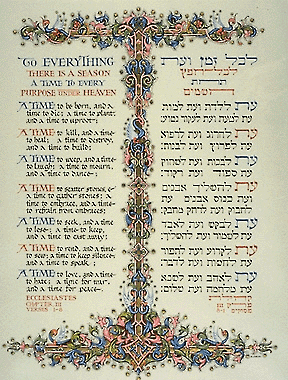 TO EVERYTHING
THERE IS A SEASON
A TIME TO EVERY
PURPOSE UNDER HEAVEN
A TIME to be born, and a
time to die; a time to plant;
and a time to uproot;
A TIME to kill, and a time
to heal; a time to destroy,
and a time to build;
A TIME to weep, and a time
to laugh; a time to mourn,
and a time to dance;
A TIME to scatter stones,
a time to gather stones; a
time to embrace, and a time
to refrain from embraces;
A TIME to seek, and a time
to lose; a time to keep,
and a time to cast away;
A TIME to rend, and a time
to sew; a time to keep silence;
and a time to speak;
A TIME to love, and a time
to hate; a time for war,
and a time for peace
ECCLESIASTES
CHAPTER III
VERSES 1-8
לכל זמן ועת
לכל-חפץ
תחת
השמים
עת ללדת ועת למות
עת לטעת ועת לעקור נטוע:
עת להרוג ועת לרפוא
עת לפרוץ ועת לבנות:
עת לבכות ועת לשחוק
עת ספוד ועת רקוד:
עת להשליך אבנים
ועת כנוס אבנים עת
לחבוק ועת לרחק מחבק:
עת לבקש ועת לאבד
עת לשמור ועת להשליך:
עת לקרוע ועת לתפור
עת לחשות ועת לדבר:
עת לאהב ועת לשנא
עת מלחמה ועת שלום:
קהלת